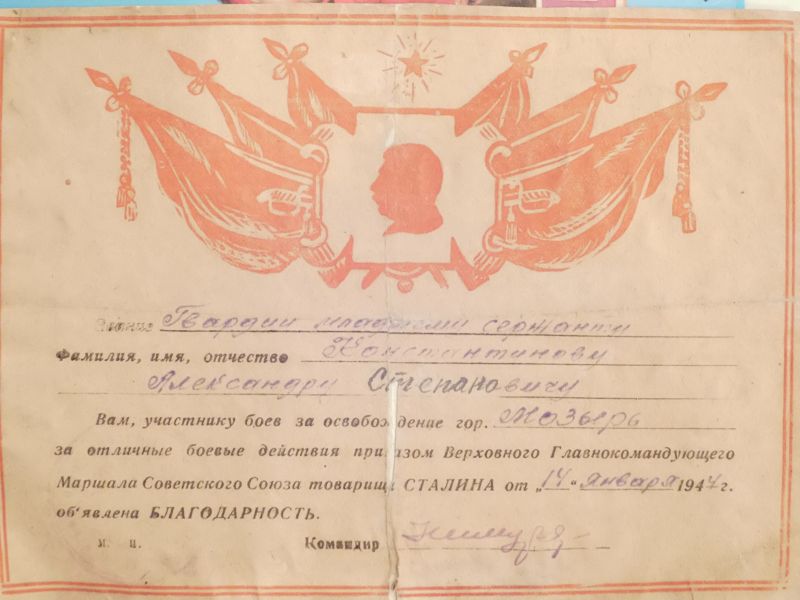 Звание Гвардии младшему сержанту
Фамилия, имя, отчество Константинову
Александру Степановичу
Вам, участнику боев за освобождение гор. Мозырь
за отличные боевые действия приказом Верховного Главнокомандующего
Маршала Советского Союза товарища СТАЛИНА от „14" января 1944 г.
об'явлена БЛАГОДАРНОСТЬ.
м. п. Командир